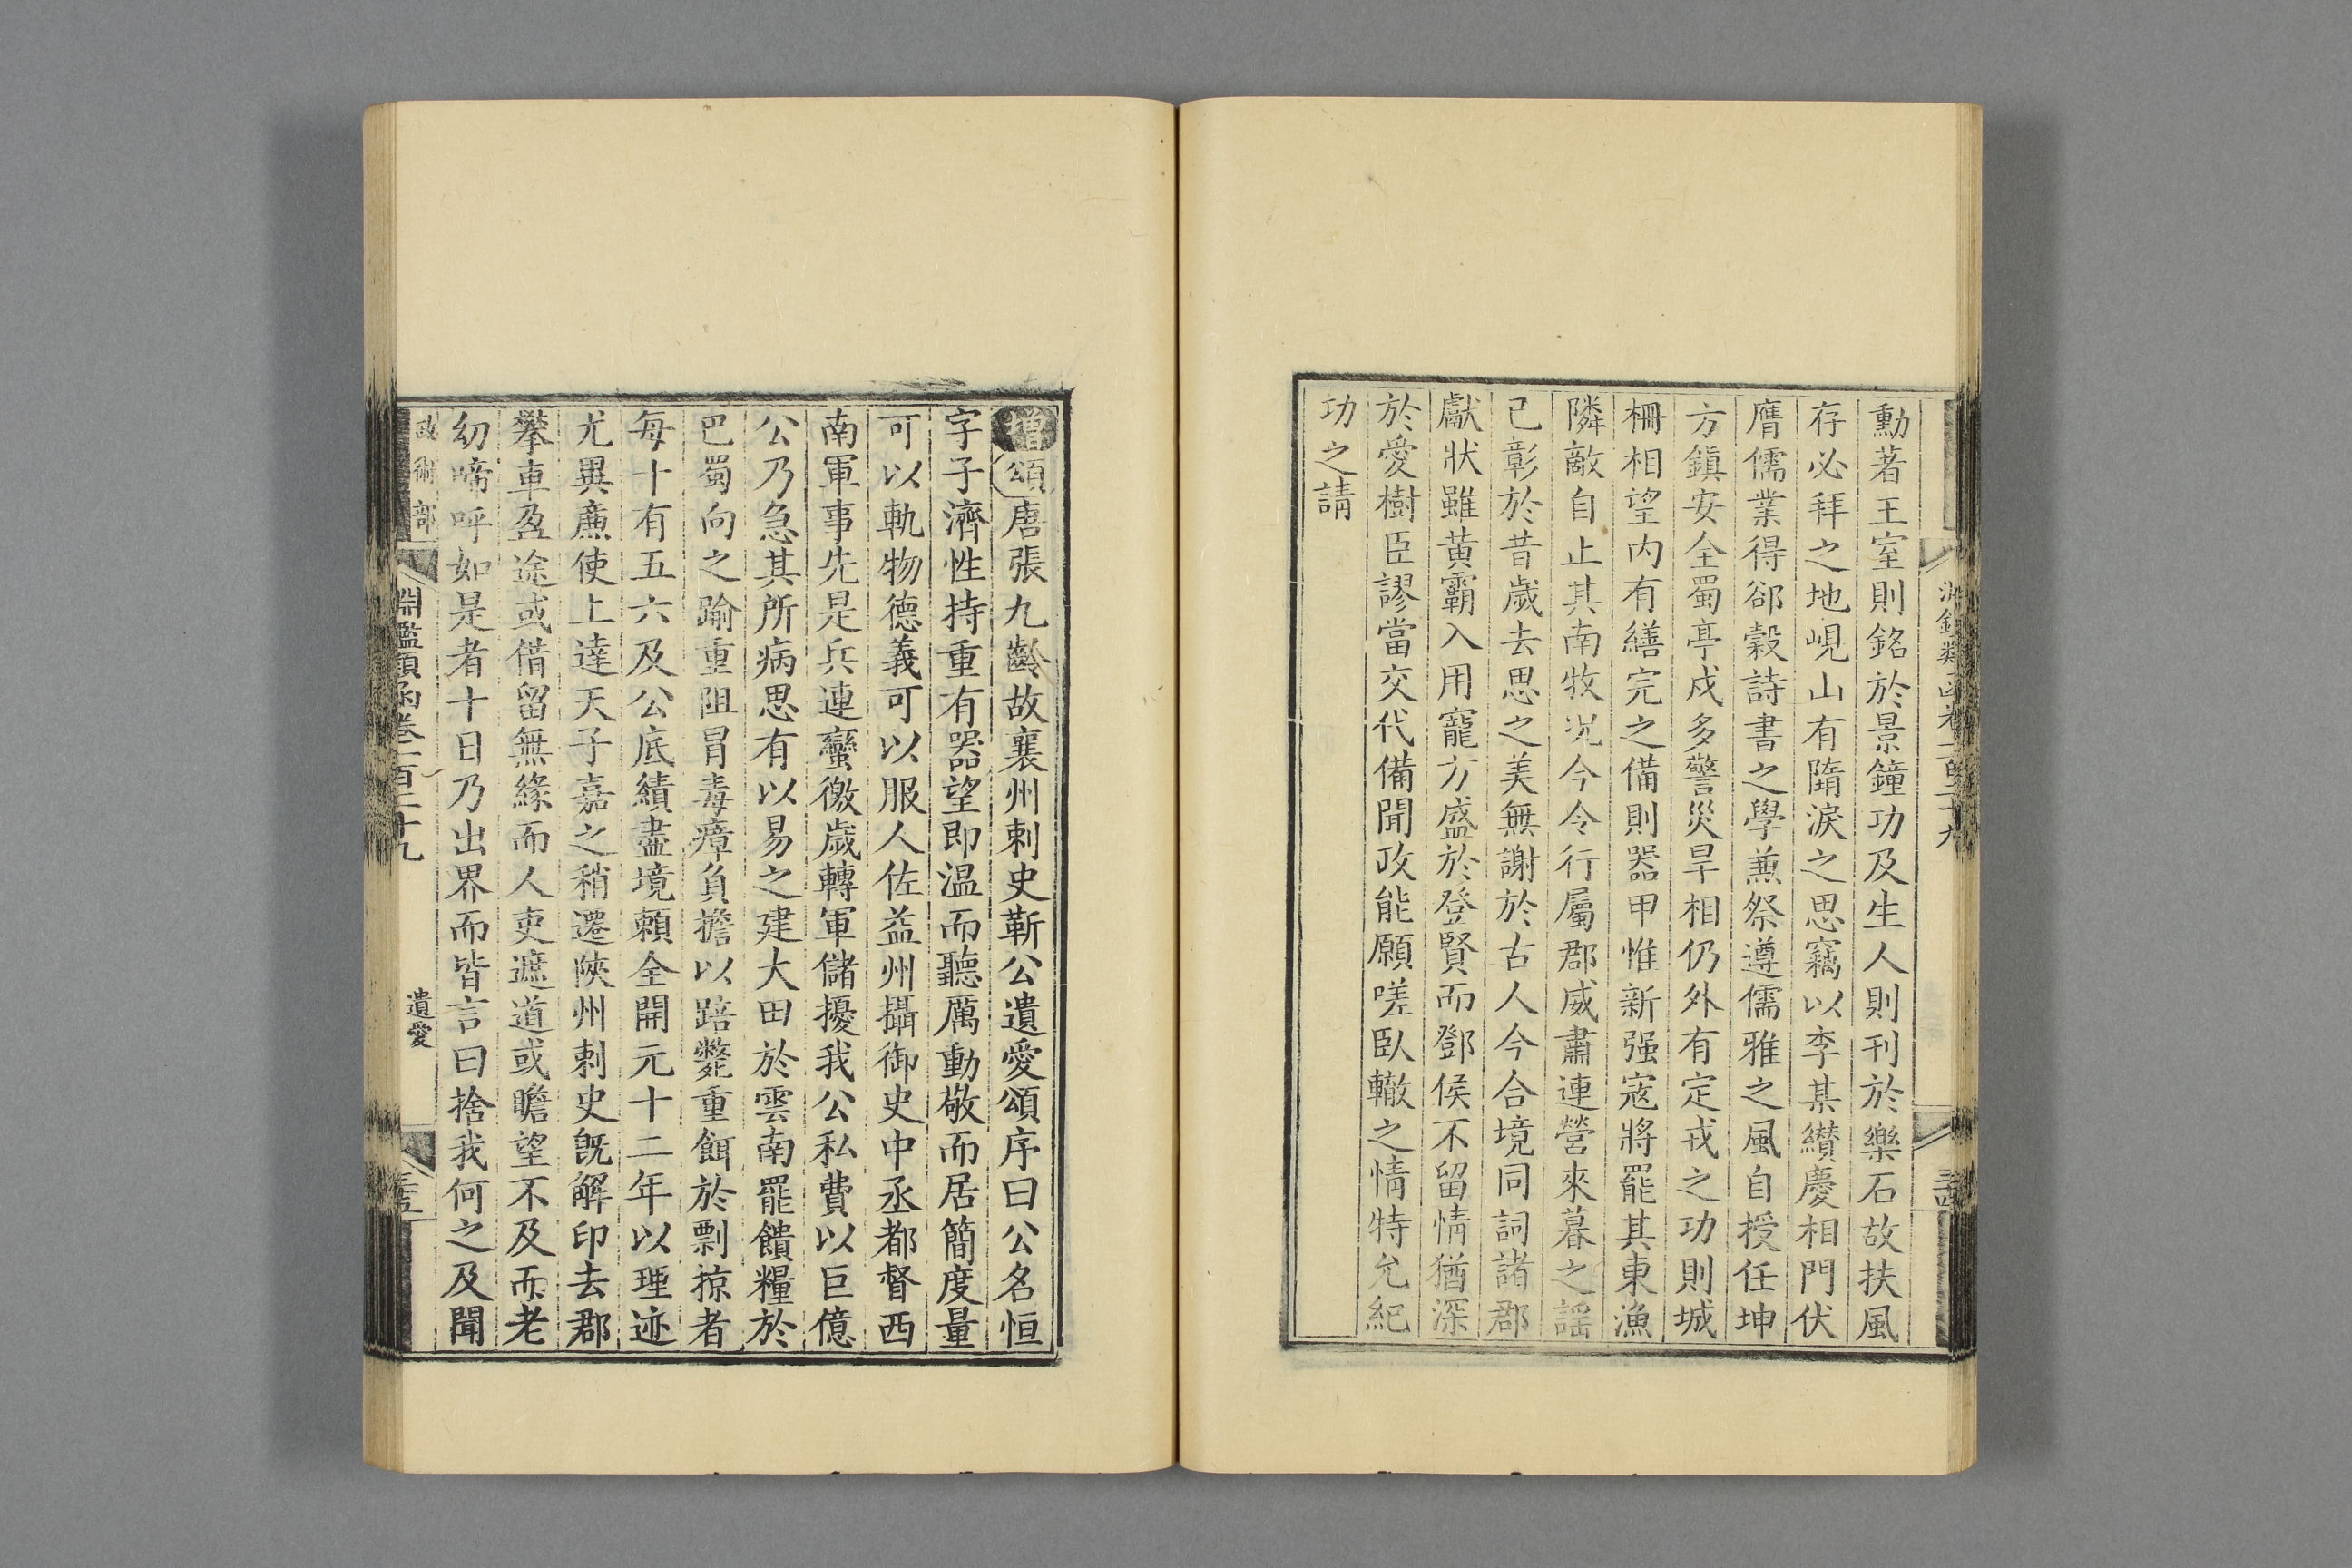 勳著王室則銘於景鐘功及生人則刊於樂石故扶風
存必拜之地峴山有隋淚之思竊以李某纘慶相門伏
膺儒業得郤縠詩書之學兼祭遵儒雅之風自授任坤
方鎮安全蜀亭戍多警災旱相仍外有定戎之功則城
柵相望内有繕完之備則器甲惟新强寇將罷其東漁
隣敵自止其南牧况今令行屬郡威肅連營來暮之謡
已彰於昔歲去思之美無謝於古人今合境同詞諸郡
獻狀雖黄霸入用寵方盛於登賢而鄧侯不留情猶深
於愛樹臣謬當交代備聞政能願嗟臥轍之情特允紀
功之請
增頌唐張九齡故襄州刺史靳公遺愛頌序曰公名恒
字子濟性持重有器望即温而聽厲動敬而居簡度量
可以軌物德義可以服人佐益州攝御史中丞都督西
南軍事先是兵連蠻徼歲轉軍儲擾我公私費以巨億
公乃急其所病思有以易之建大田於雲南罷饋糧於
巴蜀向之踰重阻冒毒瘴負擔以踣斃重餌於剽掠者
每十有五六及公底績盡境賴全開元十二年以理迹
尤異廉使上達天子嘉之稍遷陝州刺史旣解印去郡
攀車盈途或借留無緣而人吏遮道或瞻望不及而老
幼啼呼如是者十日乃出界而皆言曰捨我何之及聞
政術部 淵鑑類函卷一百二十九 遺愛